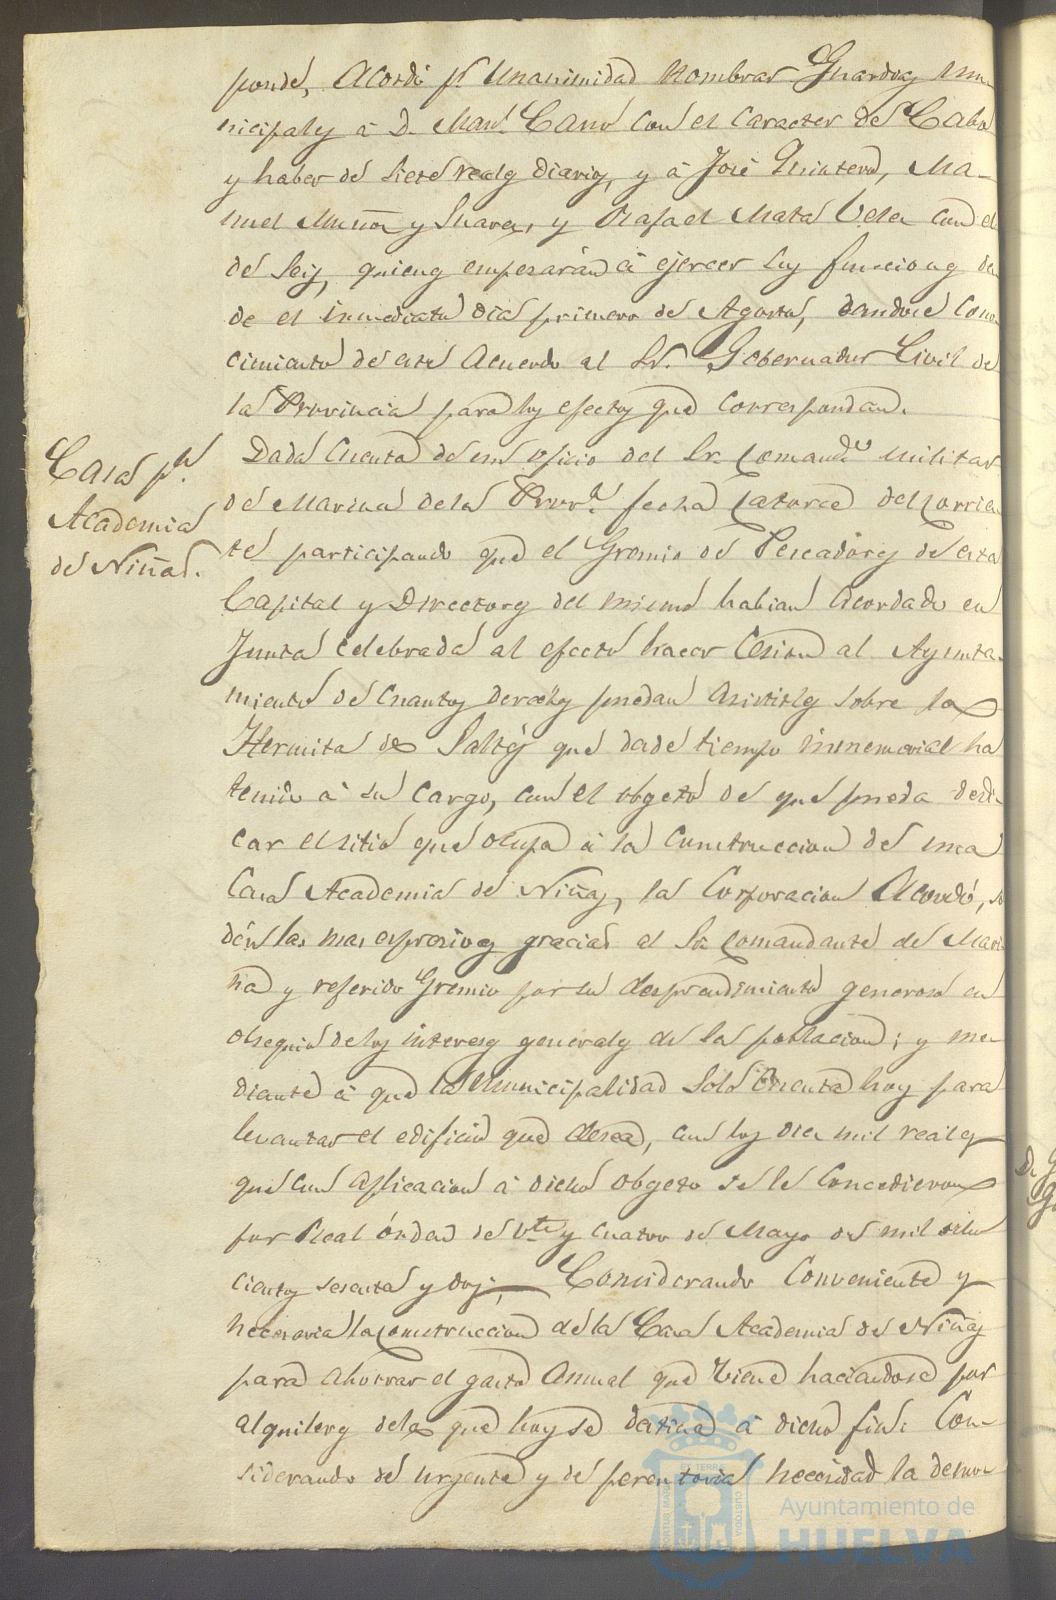 ponde, Acordó pr. Unanimidad nombrar Guardas mu-
nicipales á D. Manl. Cano con el caracter de Cabo
y haber de siete reales diarios, y á José Quintero, Ma-
nuel Muñoz y Suarez, y Rafael Mata Vela con el
de seis, quienes empesarán á ejercer sus funciones des
de el inmediato dia primero de Agosto, dandose cono-
cimiento de este Acuerdo al Sr. Gobernador Civil de
la Provincia para los efectos que correspondan.
Casa pa.
Academia
de Niñas.
Dada cuenta de un oficio del Sr. Comande. militar
de Marina de la Prova. fecha catorce del corrien
te participando que el Gremio de Pescadores de esta
Capital y Directores del mismo habian acordado en
Junta celebrada al efecto hacer cesion al Ayunta-
miento de cuantos derechos puedan asistirles sobre la
Hermita de Saltés que desde tiempo inmemorial ha
tenido á su cargo, con el obgeto de que pueda dedi-
car el sitio que ocupa á la construccion de una
Casa Academia de Niñas, la Corporacion Acordó, se
dén las mas espresivas gracias al Sr. Comandante de Mari
na y referido Gremio por su desprendimiento generoso en
obsequio de los intereses generales de la poblacion; y me-
diante á que la Municipalidad solo cuenta hoy para
levantar el edificio que desea, con los diez mil reales
que con aplicacion á dicho obgeto se le concedieron
por Real órden de vte. y cuatro de Mayo de mil ocho
cientos sesenta y dos; Considerando conveniente y
necesaria la construccion de la Casa Academia de Niñas
para ahorrar el gasto anual que viene haciendose por
alquileres de la que hoy se destina á dicho fin: Con-
siderando de urgente y de perentoria necesidad la demo
Ayuntamiento de
HUELVA